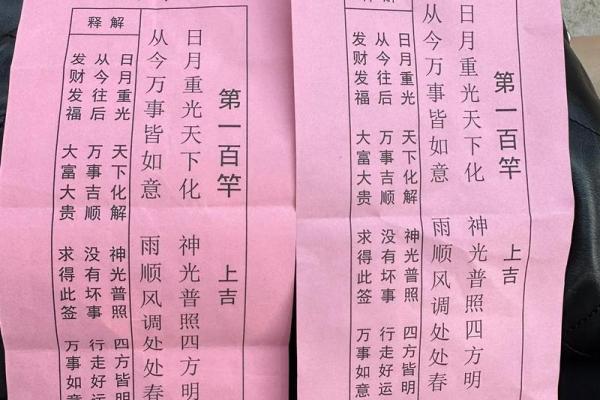 第一百竿 上吉
日月重光天下化 神光普照四方明
从今万事皆如意 雨顺风调处处春
解释
日月重光 天下化解 神光普照 四方皆明
从今往后 万事吉顺 没有坏事 行走好运
发财发福 大富大贵 求得此签 万事如意
第一百竿 上吉
日月重光天下化 神光普照四方明
从今万事皆如意 雨顺风调处处春
解释
日月重光 天下化解 神光普照 四方皆明
从今往后 万事吉顺 没有坏事 行走好运
发财发福 大富大贵 求得此签 万事如意